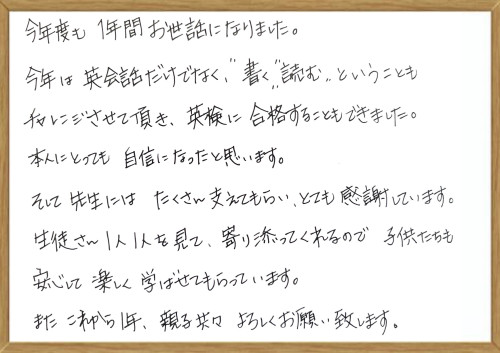 今年度も 1年間 お世話になりました。
今年は 英会話だけでなく、"書く""読む" ということも
チャレンジさせて頂き、英検に 合格することもできました。
本人にとっても 自信になったと思います。
そして 先生には たくさん支えてもらい、とても 感謝しています。
生徒さん 1人1人を見て、寄り添ってくれるので 子供たちも
安心して 楽しく 学ばせてもらっています。
また これから1年、親子共々 よろしくお願い致します。